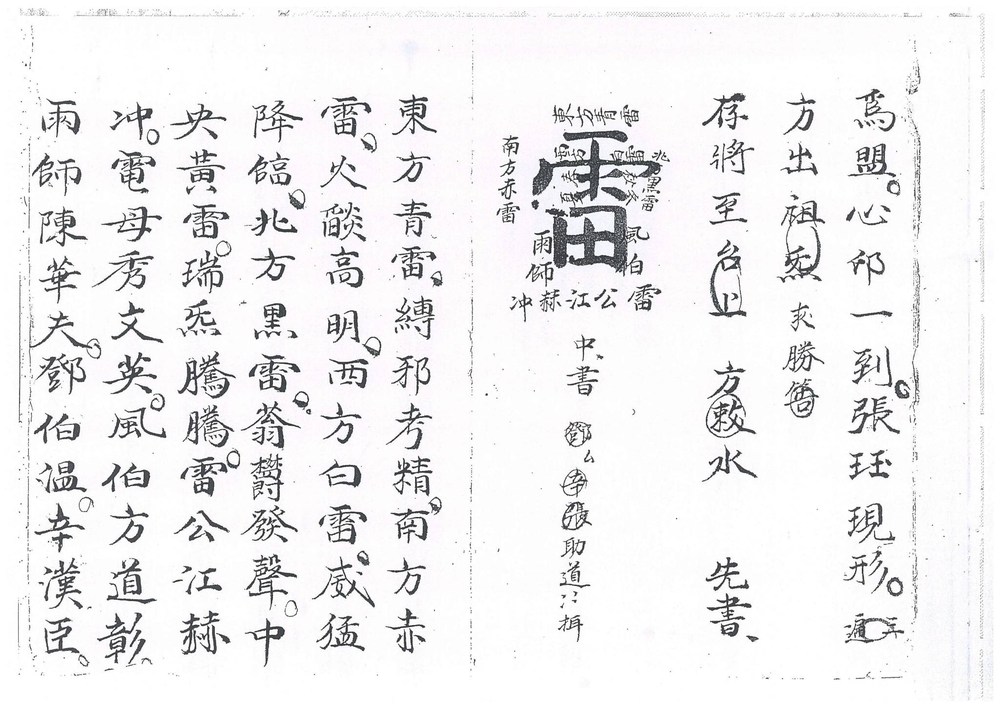 為盟。心印一到。張珏現形。三遍
方出祖炁 求勝
存將至台止 方敕水 先書、
東方青雷
雷
南方赤雷
風伯
雨師
雷公江赫冲
中、書
鄧 辛 張 助道
東方青雷。縛邪考精。南方赤
雷。火燄高明。西方白雷。威猛
降臨。北方黑雷。蓊欝發聲。中
央黃雷。瑞炁騰騰。雷公江赫
冲。電母秀文英。風伯方道彰。
雨師陳華夫。鄧伯溫。辛漢臣。